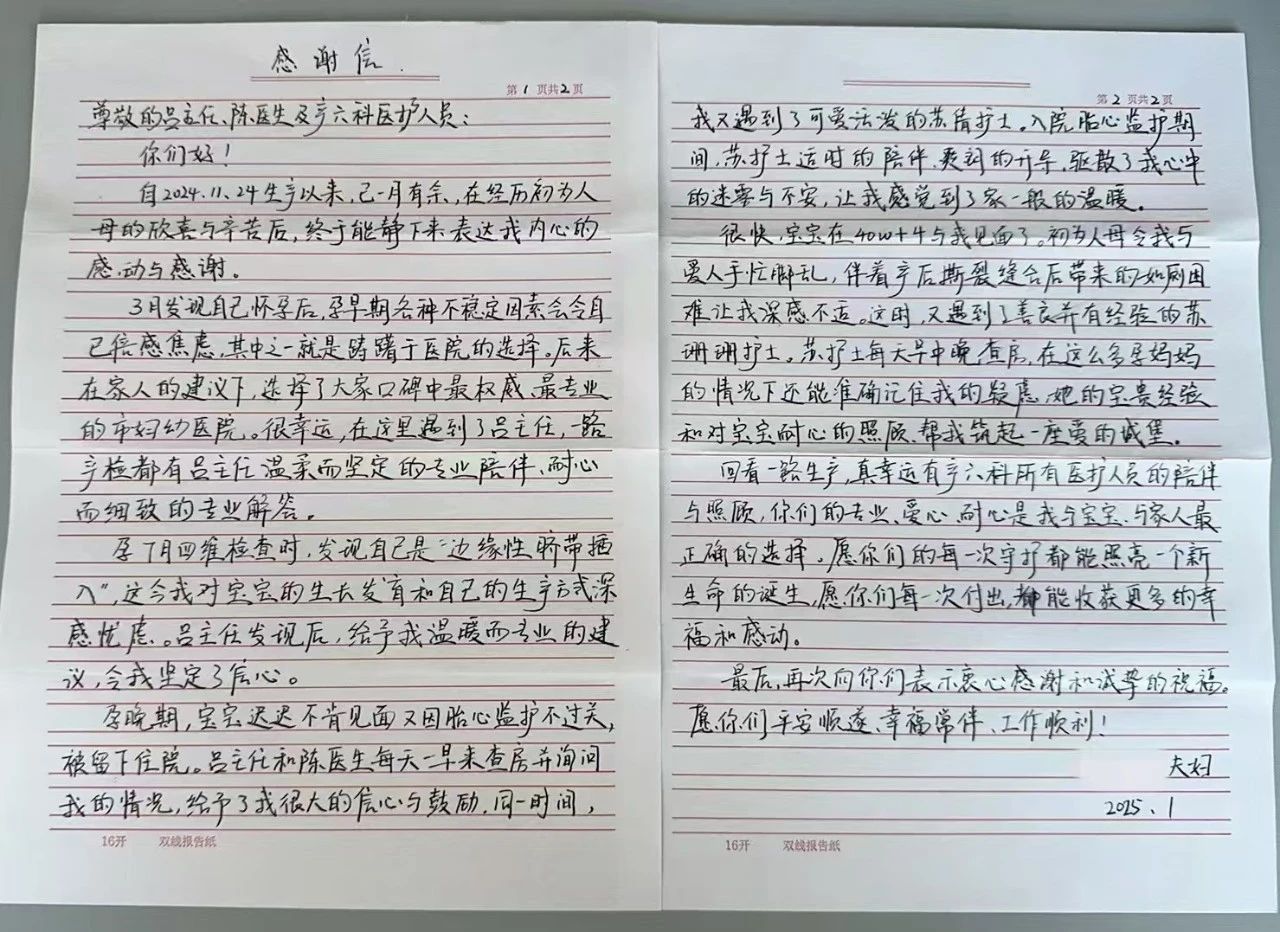 感谢信
第1页共2页
尊敬的吕主任、陈医生及产六科医护人员：
你们好！
自2024.11.24生产以来，已一月有余，在经历初为人
母的欣喜与辛苦后，终于能静下来表达我内心的
感动与感谢。
3月发现自己怀孕后，孕早期各种不稳定因素会令自
己倍感焦虑，其中之一就是踌躇于医院的选择。后来
在家人的建议下，选择了大家口碑中最权威、最专业
的市妇幼医院。很幸运，在这里遇到了吕主任，一路
产检都有吕主任温柔而坚定的专业陪伴、耐心
而细致的专业解答。
孕7月四维检查时，发现自己是“边缘性脐带插
入”，这令我对宝宝的生长发育和自己的生产方式深
感忧虑。吕主任发现后，给予我温暖而专业的建
议，令我坚定了信心。
孕晚期，宝宝迟迟不肯见面又因胎心监护不过关，
被留下住院。吕主任和陈医生每天一早来查房并询问
我的情况，给予了我很大的信心与鼓励，同一时间，
16开 双线报告纸
第2页共2页
我又遇到了可爱活泼的苏倩护士。入院胎心监护期
间，苏护士适时的陪伴、爽朗的开导，驱散了我心中
的迷雾与不安，让我感觉到了家一般的温暖。
很快，宝宝在40w+4与我见面了。初为人母令我与
爱人手忙脚乱，伴着产后撕裂缝合后带来的如厕困
难让我深感不适。这时，又遇到了善良并有经验的苏
珊珊护士。苏护士每天早中晚查房，在这么多孕妈妈
的情况下还能准确记住我的疑虑，她的宝贵经验
和对宝宝耐心的照顾，帮我筑起一座爱的城堡。
回看一路生产，真幸运有产六科所有医护人员的陪伴
与照顾，你们的专业、爱心、耐心是我与宝宝、与家人最
正确的选择。愿你们的每一次守护都能照亮一个新
生命的诞生，愿你们每一次付出，都能收获更多的幸
福和感动。
最后，再次向你们表示衷心感谢和诚挚的祝福。
愿你们平安顺遂、幸福常伴、工作顺利！
夫妇
2025.1
16开 双线报告纸